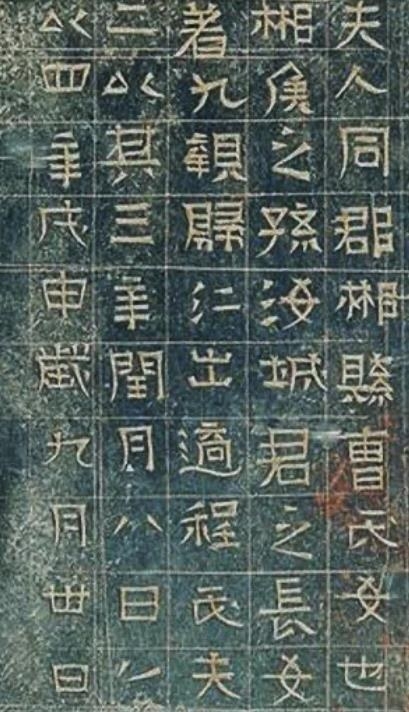 夫人同郡縣曹氏女也
侯之孫海城君之長女
著九親歸仁出適程氏夫
二以其三年閏月八日
以四年戊申歲九月卅日